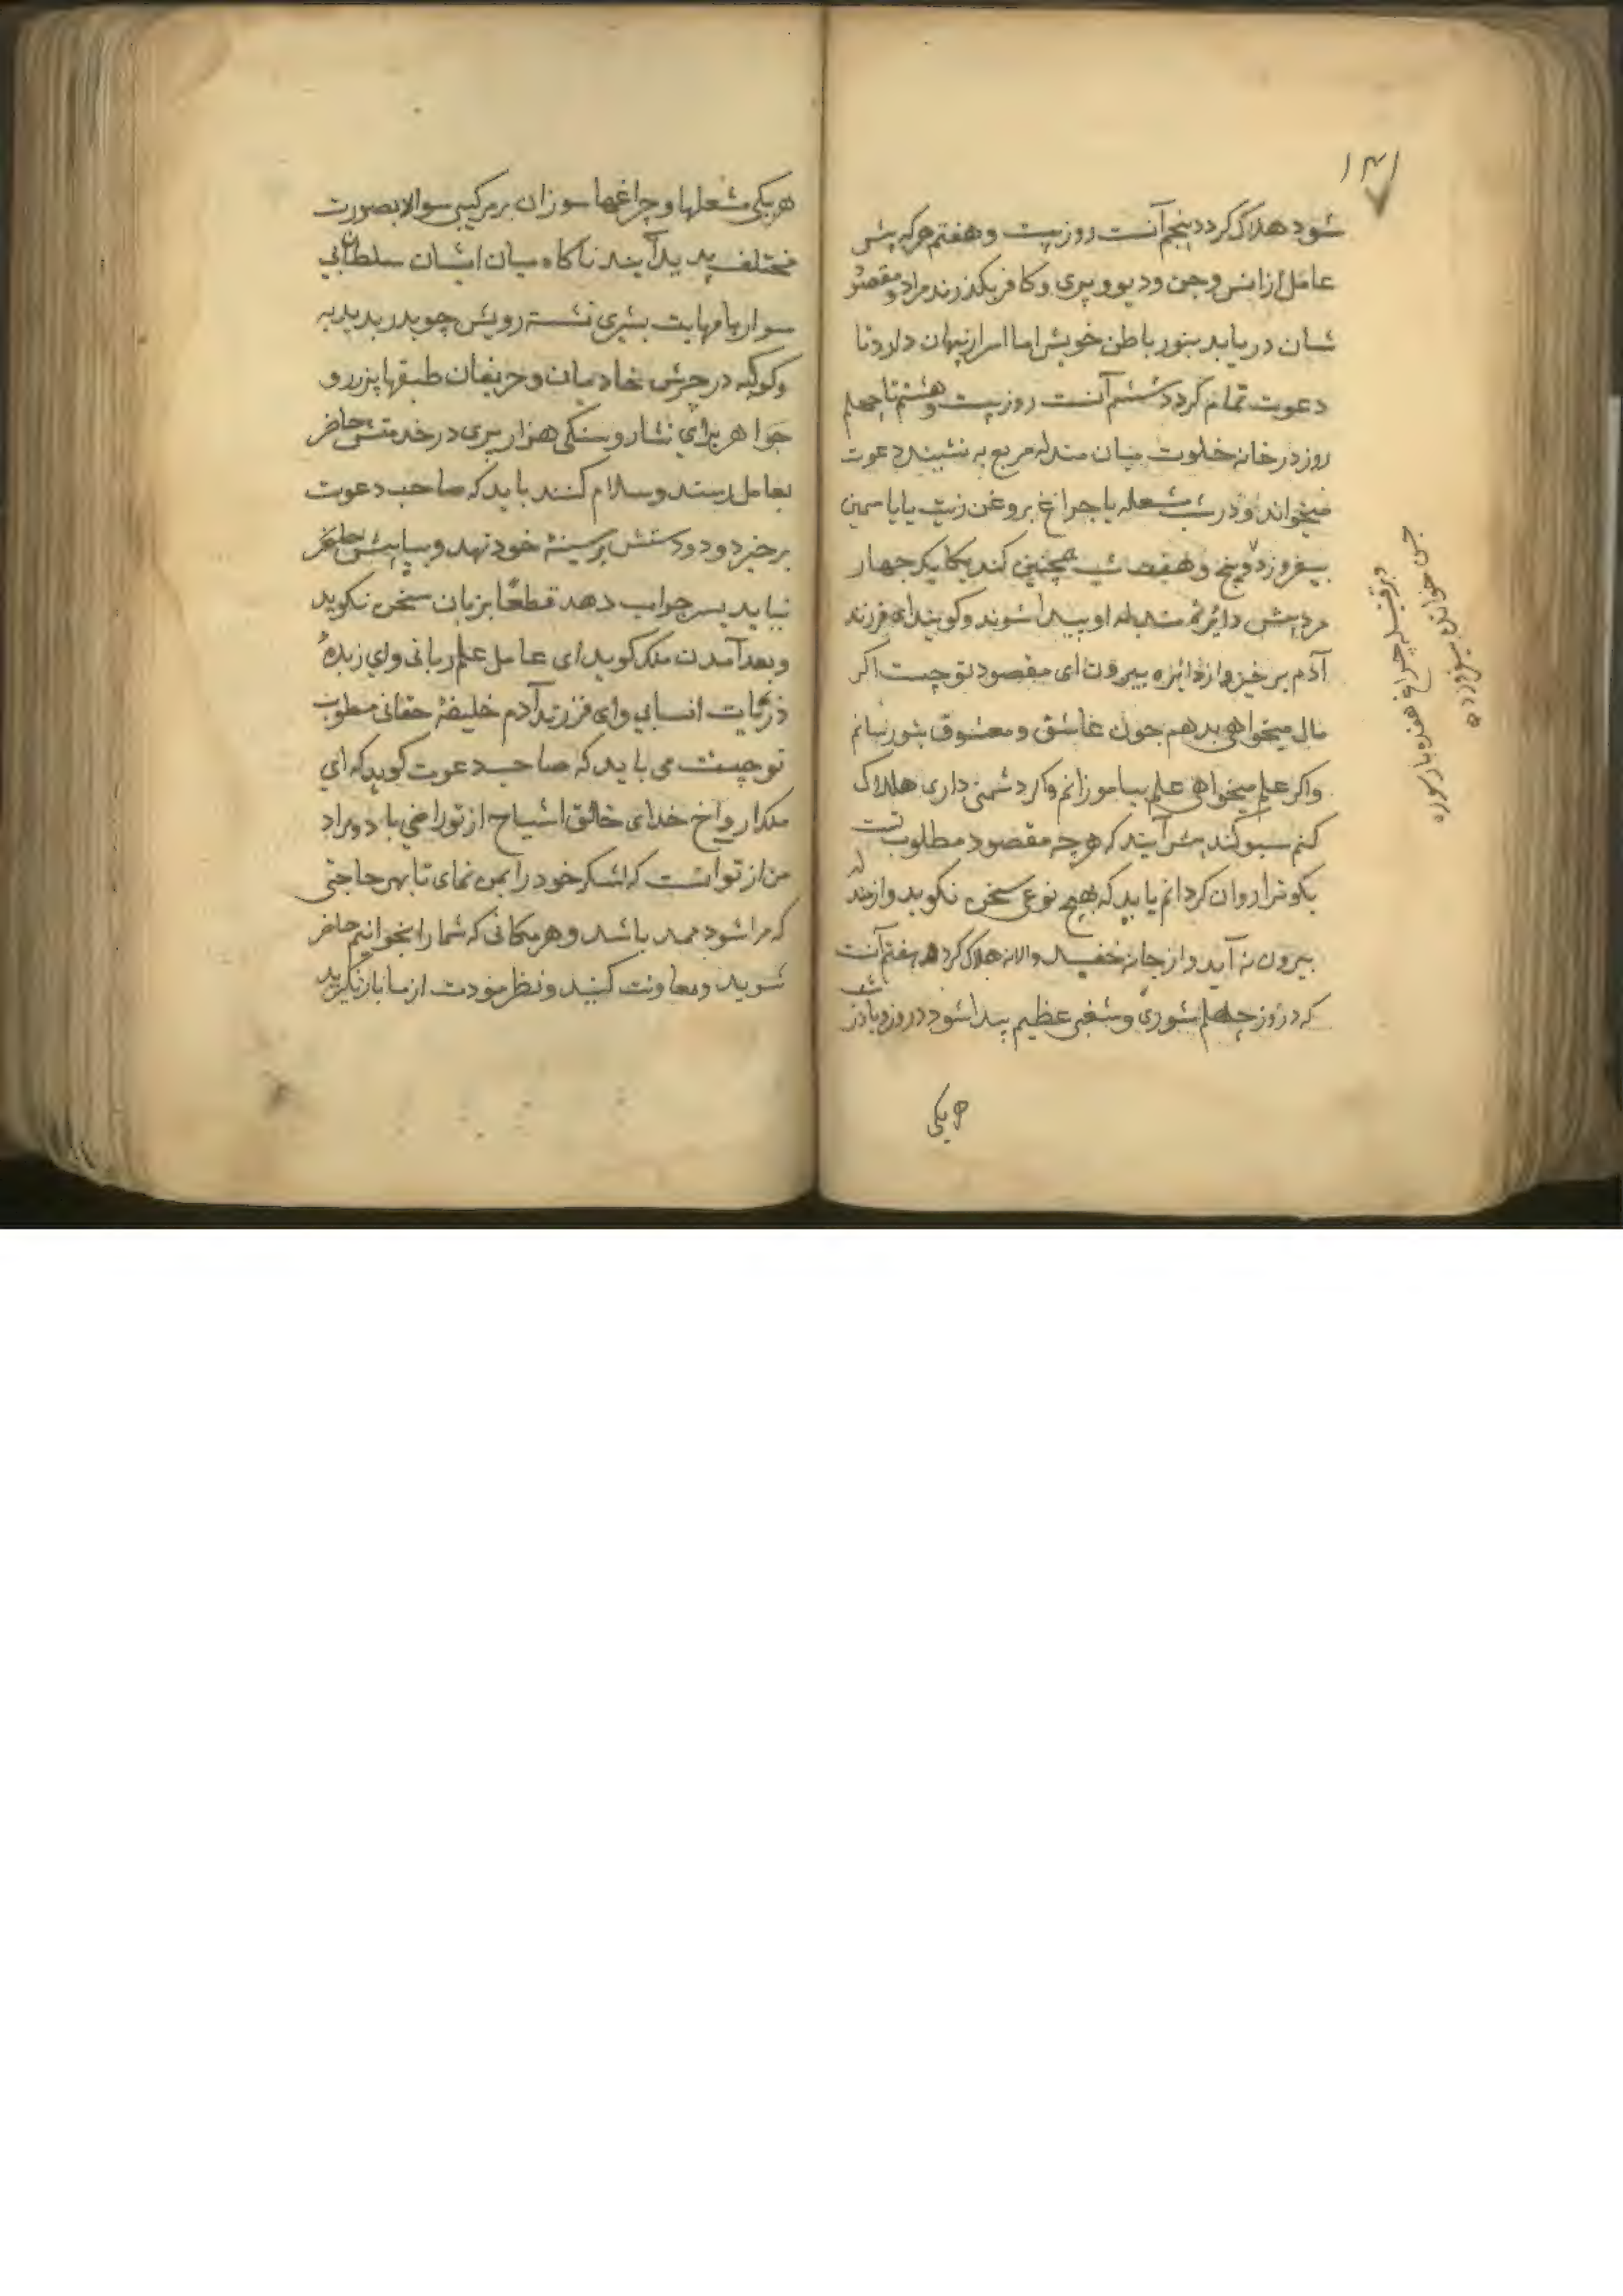 ۱۴۱
شود هلاک کردد پنجم آنست روز بیست و هفتم هرکه پیش
عامل از انس و جن و دیو و پری و کافر بگذرند مراد و مقصود
شان دریابد بنور باطن خویش اما اسرار نهان دارد تا
دعوت تمام کردد ششم آنست روز بیست و هشتم تا چهلم
روز در خانه خلوت میان مندله مربع به نشیند دعوت
میخواند و در شب مشعله یا چراغ بروغن زیت یا یاسمین
بیفروزد و پنج و هفت شب همچنین کند یکایک چهار
مرد پیش دایره مندله او پیدا شوند و کویند ای فرزند
آدم برخیز و از دایره بیرون ای مقصود تو چیست اکر
مال میخواهی بدهم چون عاشق و معشوق بتو رسانم
واکر علم میخواهی علم بیاموزانم واکر دشمنی داری هلاک
کنم سوکند پیش آیند که هرچه مقصود مطلوب تست
بکو ترا روان کردانم باید که بهیچ نوعی سخن نکوید و از مندله
بیرون نه آید و از جا نه خفید والا نه هلاک کردد هفتم آنست
که در روز چهلم شوری و شغبی عظیم پیدا شود در روز و یا در شب
هریکی
برفتیله چراغ هفده بار سوره
جن خوانده بسوزد
هریکی مشعلها و چراغها سوزان بر مرکبی سوار بصورت
مختلف پدید آیند ناکاه میان ایشان سلطانی
سوار با مهابت بشیری نشسته رویش چو بدر بدبدبه
و کوکبه درحرش خادمان و حریفان طبقها پر زر و
جواهر برای نثار و سنکی هزار پری در خدمتش حاضر
بعامل رسند و سلام کنند باید که صاحب دعوت
برخیزد و دو دستش بر سینه خود نهد و بپایش حاضر
نیاید پس جواب دهد قطعًا بزبان سخن نکوید
و بعد آمدن ملک کوید ای عامل علم ربانی و ای زبدهٔ
ذریات انسانی و ای فرزند آدم خلیفهٔ حقانی مطلوب
تو چیست می باید که صاحب دعوت کوید که ای
ملک ارواح خدای خالق اشباح از تو راضی باد و مراد
من از تو انست که لشکر خود را بمن نمای تا بهر حاجتی
که مرا شود ممد باشد و هر مکانی که شما را بخوانیم حاضر
شوید و معاونت کنید و نظر مودت از ما باز نکیرید